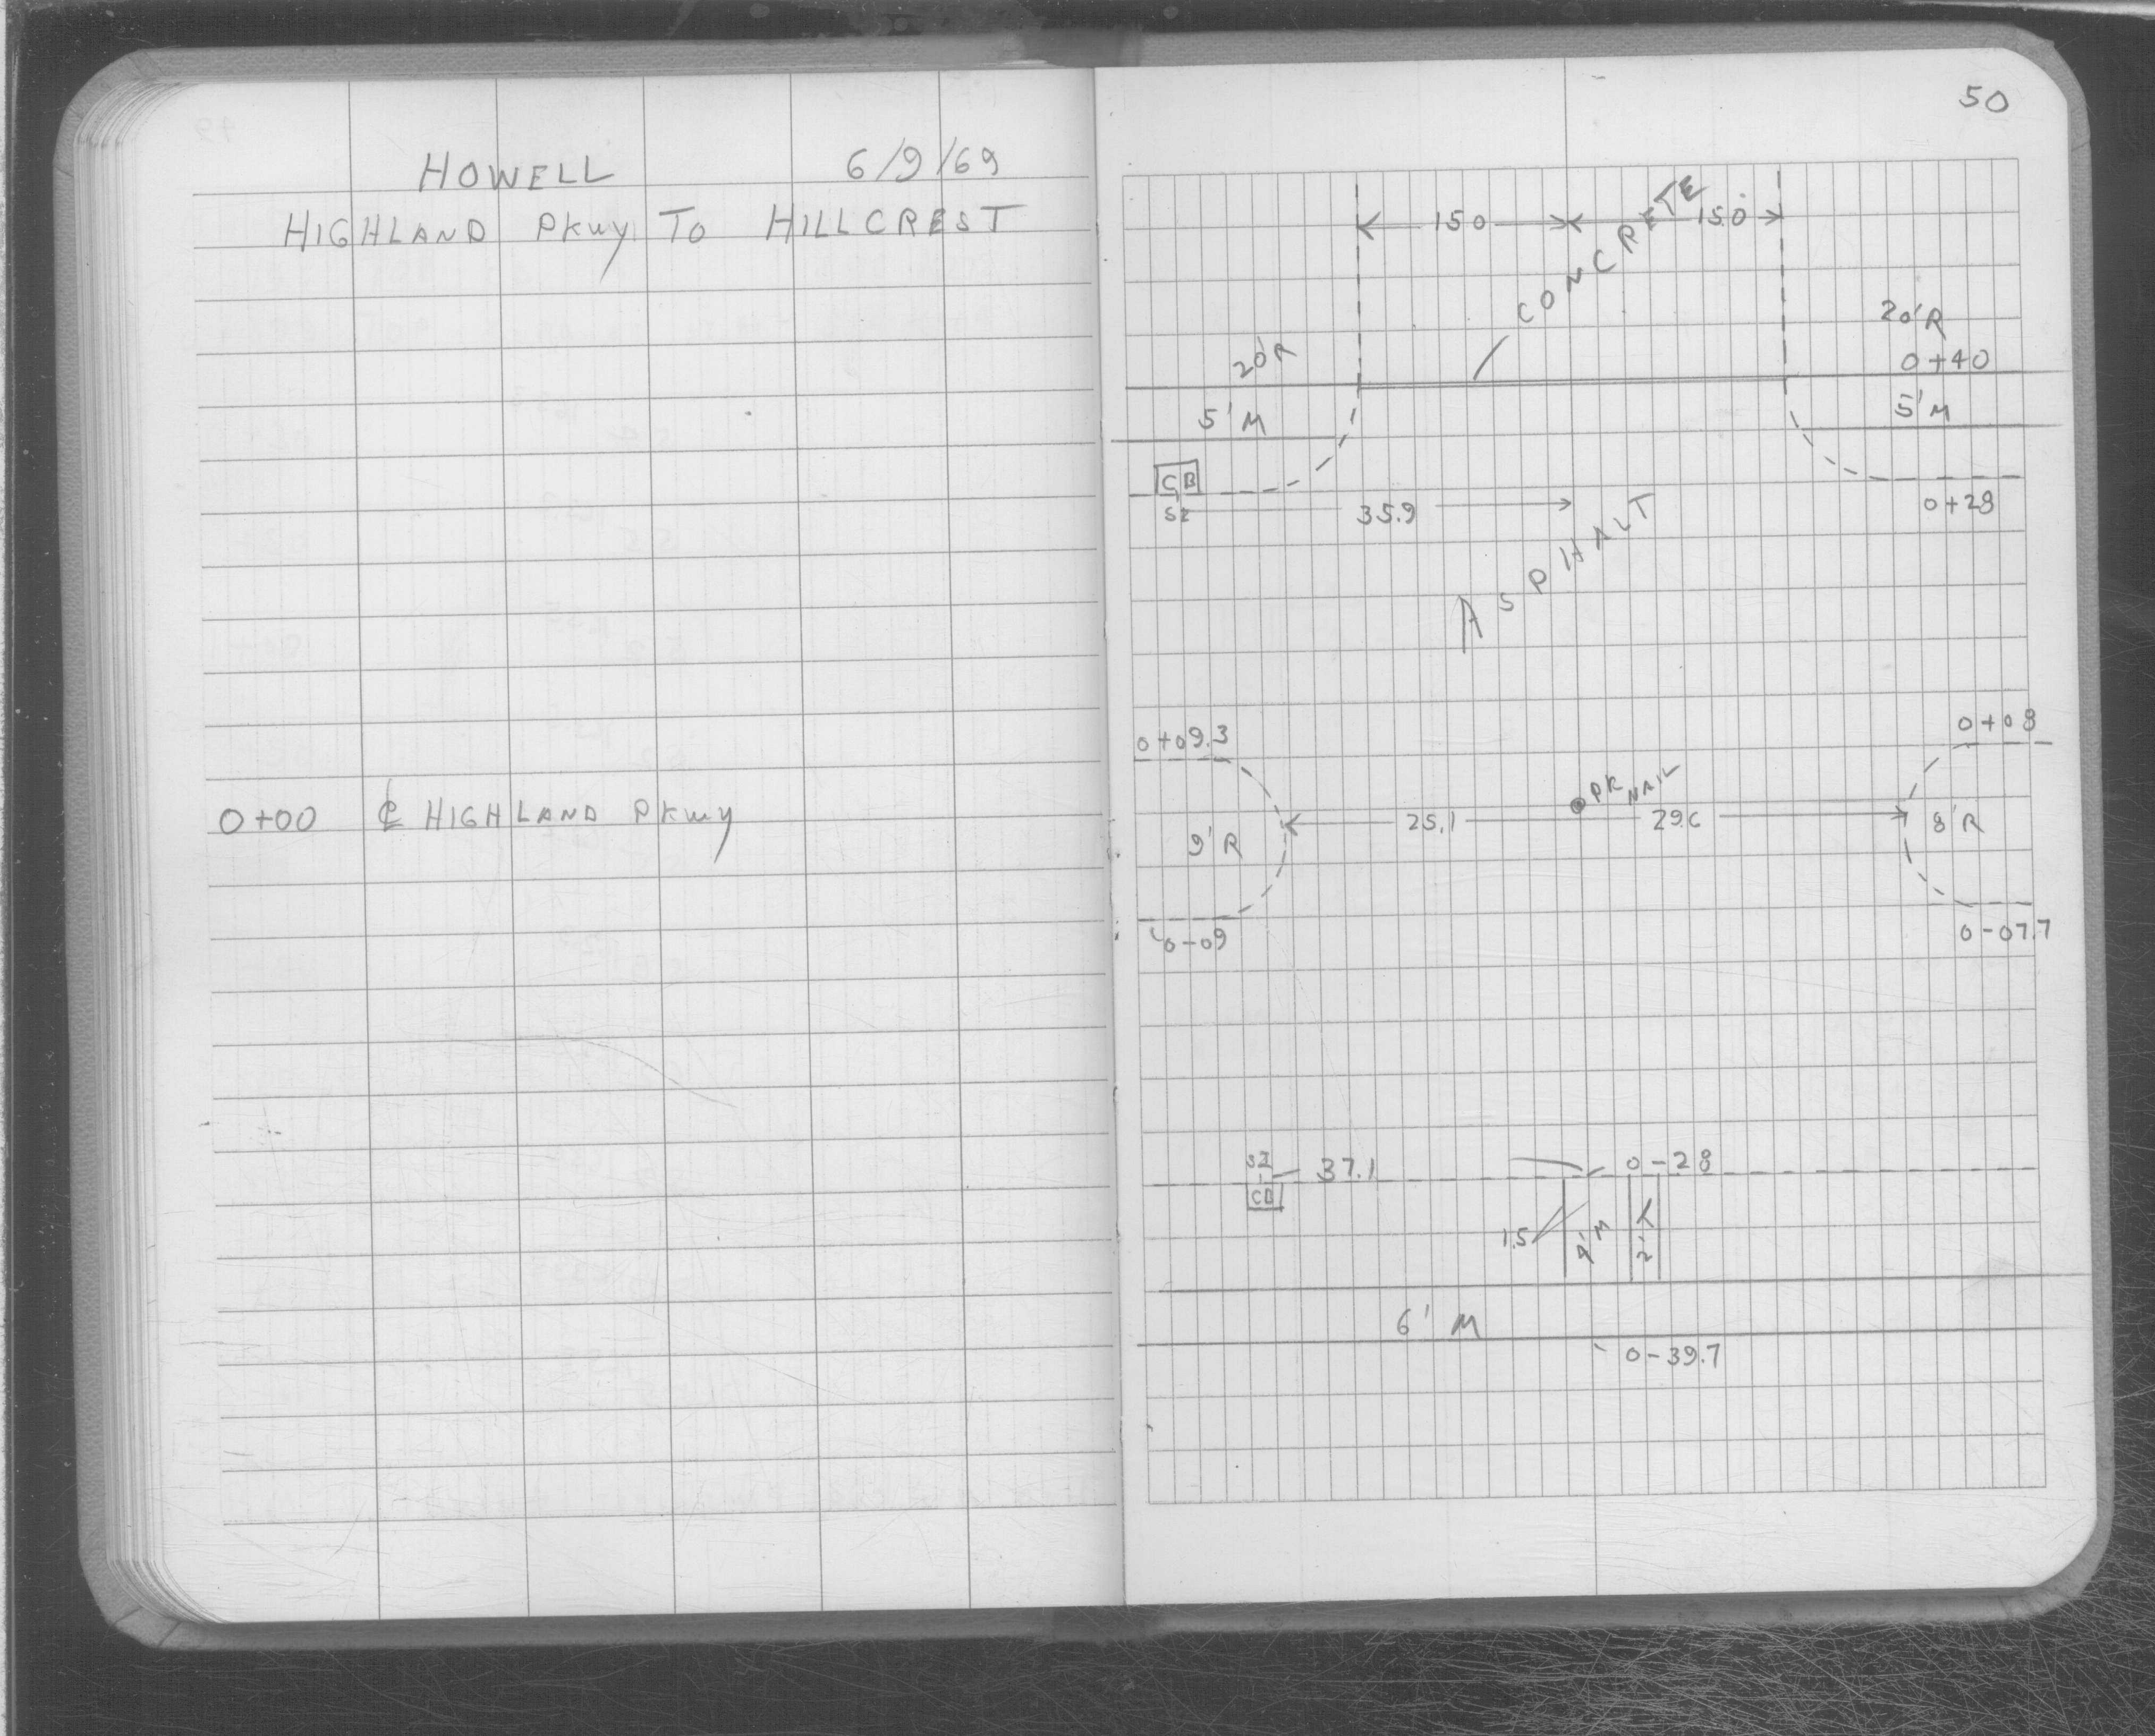 HOWELL 6/9/69
HIGHLAND PKwy To HILLCREST
0+00 ℄ HIGHLAND PKwy
50
150 150
CONCRETE
20'R
20'R
0+40
5'M
5'M
CB
S2
35.9
0+28
ASPHALT
0+09.3
0+08
PK NAIL
25.1 29.6
9'R
8'R
0-09
0-07.7
S2
37.1
0-28
CB
1.5
2'
6' M
0-39.7